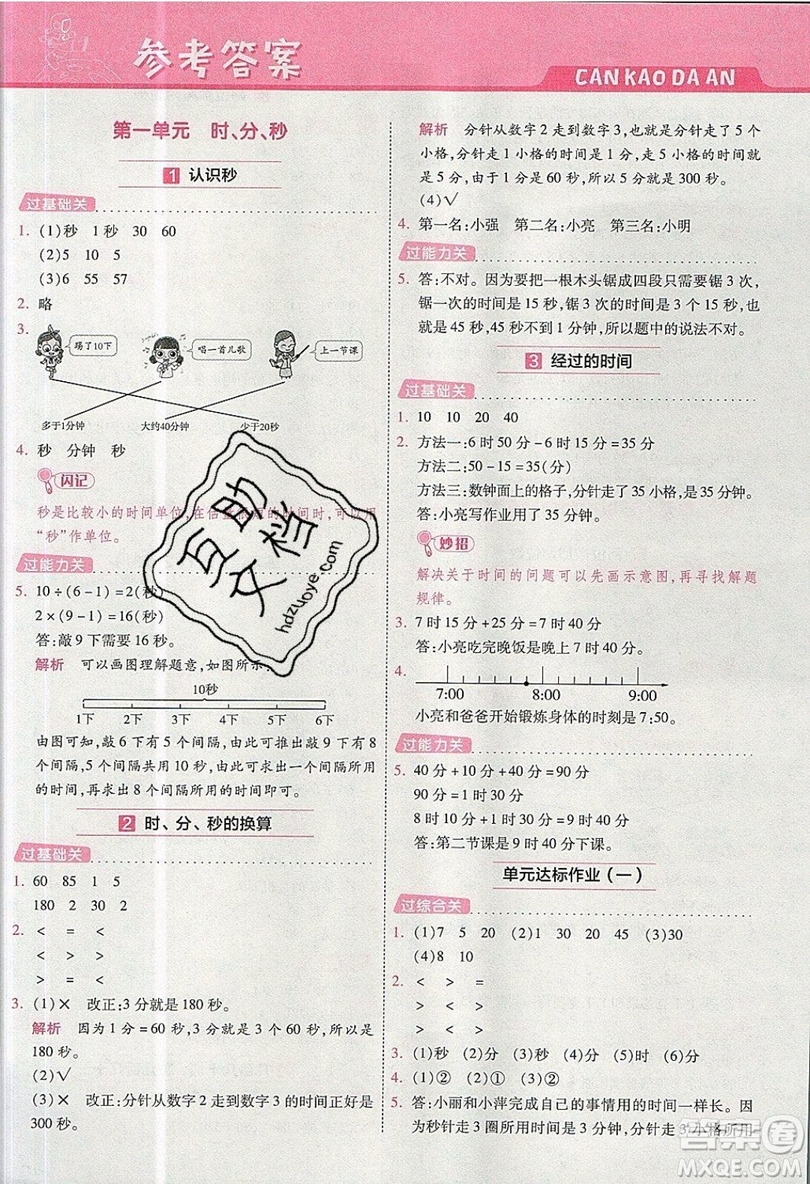 参考答案
CAN KAO DA AN
第一单元 时、分、秒
1 认识秒
过基础关
1. (1)秒 1秒 30 60
(2)5 10 5
(3)6 55 57
2. 略
3.
踢了10下 唱一首儿歌 上一节课
多于1分钟 大约40分钟 少于20秒
4. 秒 分钟 秒
闪记
秒是比较小的时间单位,在 时间时,可以用
“秒”作单位。
过能力关
5. 10÷(6-1)=2(秒)
2×(9-1)=16(秒)
答:敲9下需要16秒。
解析 可以画图理解题意,如图所示:
10秒
1下 2下 3下 4下 5下 6下
由图可知,敲6下有5个间隔,由此可推出敲9下有8
个间隔,5个间隔共用10秒,由此可求出一个间隔所用
的时间,再求出8个间隔所用的时间即可。
2 时、分、秒的换算
过基础关
1. 60 85 1 5
180 2 30 2
2. < = <
> = <
> > <
3. (1)× 改正:3分就是180秒。
解析 因为1分=60秒,3分就是3个60秒,所以是
180秒。
(2)√
(3)× 改正:分针从数字2走到数字3的时间正好是
300秒。
解析 分针从数字2走到数字3,也就是分针走了5个
小格,分针走1小格的时间是1分,走5小格的时间就
是5分,由于1分是60秒,所以5分就是300秒。
(4)√
4. 第一名:小强 第二名:小亮 第三名:小明
过能力关
5. 答:不对。因为要把一根木头锯成四段只需要锯3次,
锯一次的时间是15秒,锯3次的时间是3个15秒,也
就是45秒,45秒不到1分钟,所以题中的说法不对。
3 经过的时间
过基础关
1. 10 10 20 40
2. 方法一:6时50分-6时15分=35分
方法二:50-15=35(分)
方法三:数钟面上的格子,分针走了35小格,是35分。
答:小亮写作业用了35分。
妙招
解决关于时间的问题可以先画示意图,再寻找解题
规律。
3. 7时15分+25分=7时40分
答:小亮吃完晚饭后是7时40分。
4.
7:00 8:00 9:00
小亮和爸爸开始锻炼身体的时刻是7:50。
过能力关
5. 40分+10分+40分=90分
90分=1时30分
8时10分+1时30分=9时40分
答:第二节课是9时40分下课。
单元达标作业(一)
过综合关
1. (1)7 5 20 (2)1 30 45 (3)30
(4)8 10
2. < > =
> < <
> > <
3. (1)秒 (2)分 (3)秒 (4)分 (5)时
4. (1)② (2)① (3)①
5. 答:小丽和小萍完成自己的事情用的时间一样长。因
为秒针走3圈所用的时间是3分钟,分针走3小格所用
互助文档
hdzuoye.com
答案圈
MXQE.COM